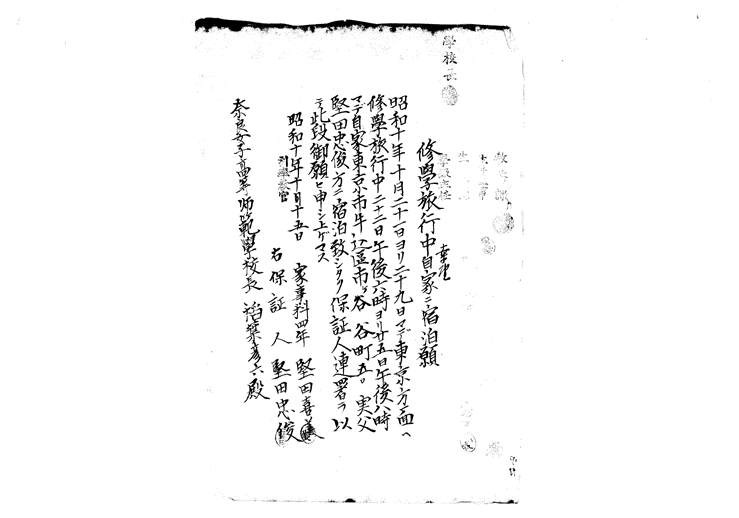 學校長
修學旅行中自家ニ宿泊願
昭和十年十月二十一日ヨリ二十九日マデ東京方面ヘ
修學旅行中二十二日午後六時ヨリ廿五日午後八時
マデ自家東京市牛込區市ヶ谷谷町五〇実父
堅田忠俊方ニ宿泊致シタク保証人連署ヲ以
テ此段御願ヒ申シ上ゲマス
昭和十年十月十五日
家事科四年 堅田喜
右保証人 堅田忠俊
奈良女子高等師範學校長 殿